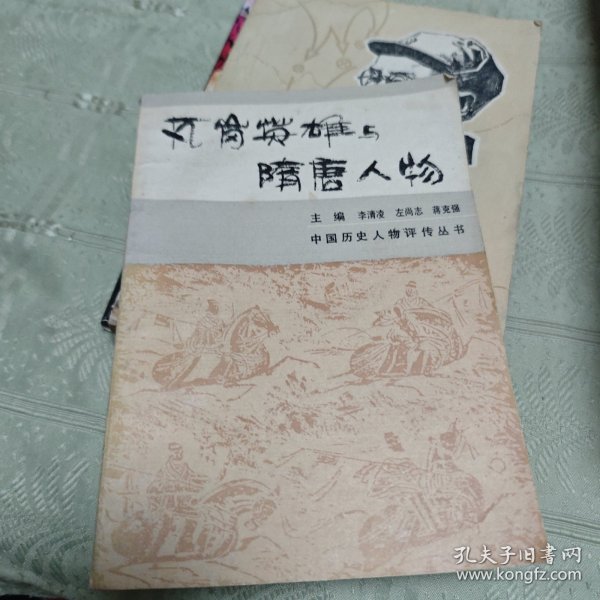 瓦岗英雄与
隋唐人物
主编 李清凌 左尚志 蒋克强
中国历史人物评传丛书
孔夫子旧书网
www.kongfz.com